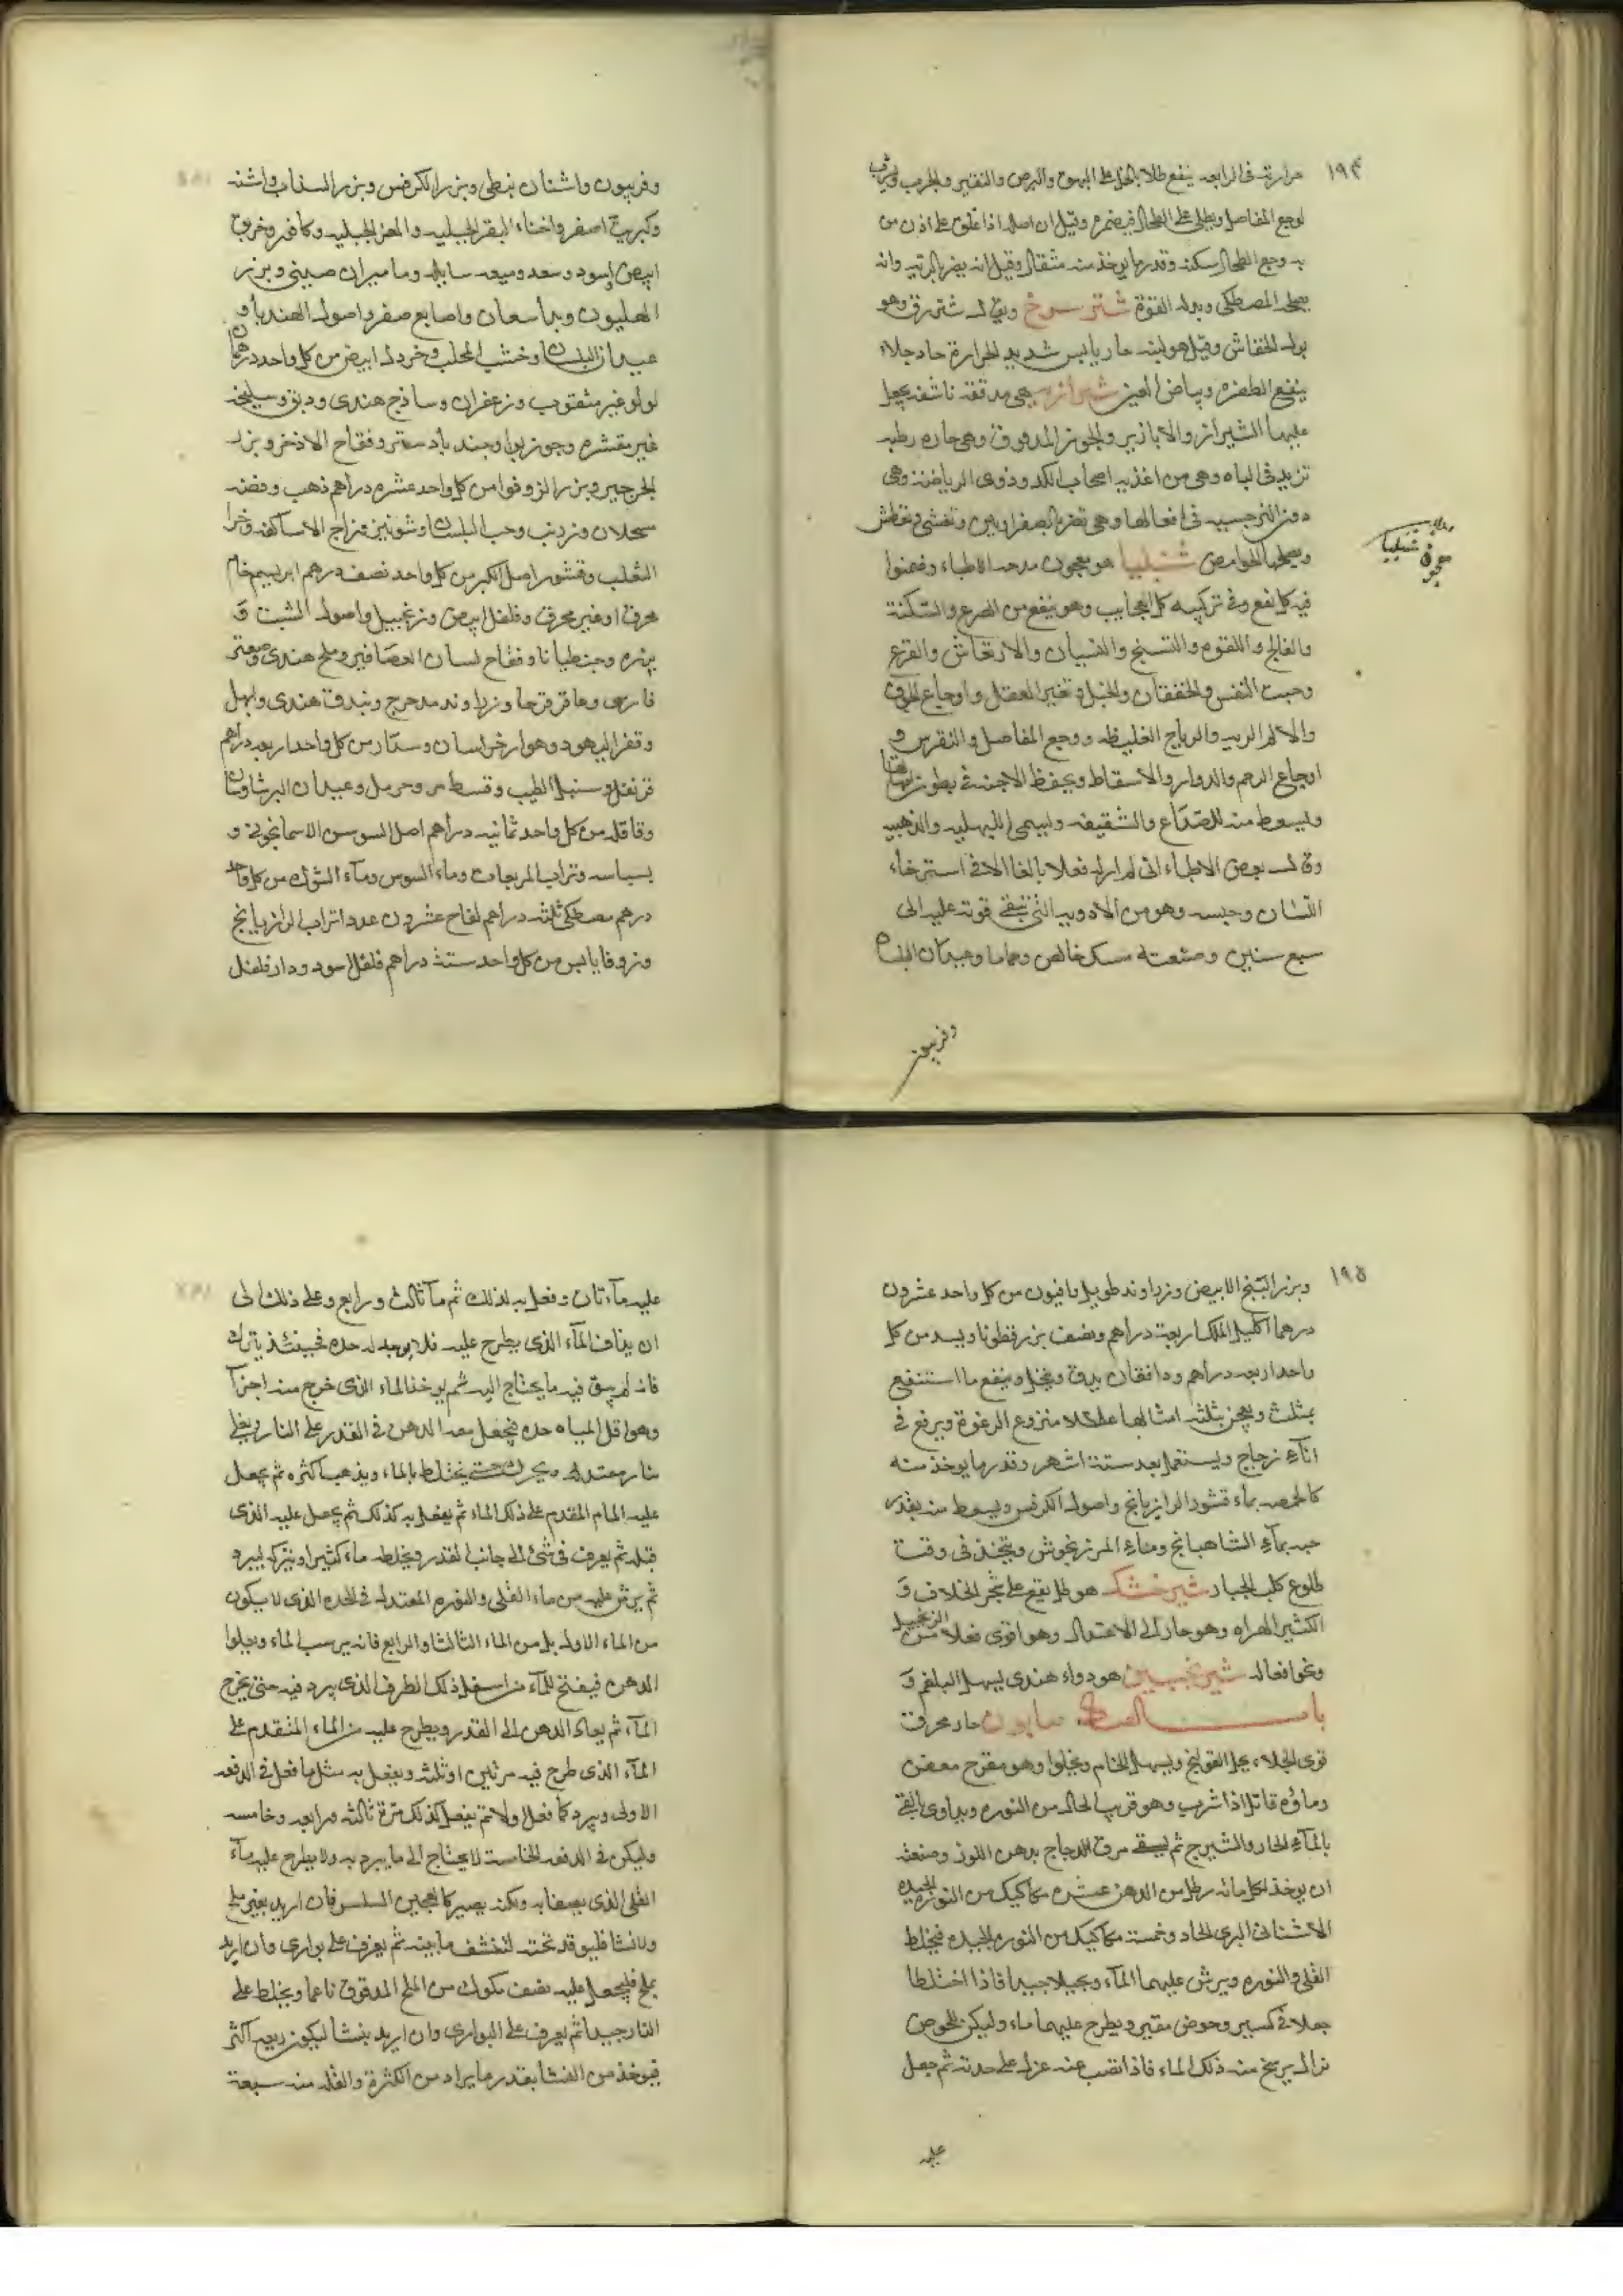 ١٩٤
حرارته فى الرابعه ينفع طلا بالخل على البهق والبرص والتقشير والجرب ويشرب
لوجع المفاصل ويطلى على الطحال فيضمره وقيل ان اصله اذا علق على اذن من
به وجع الطحال سكنه وقدر ما يوخذ منه مثقال وقيل انه يضر بالريه وانه
يصلحه المصطكى وبدله القوة شتر سرخ ويق له شترزق وهو
بول الخفاش وقيل هو لبنه حار يابس شديد الحرارة حاد جلاء
ينفع الظفره وبياض العين شيرازيه هى مدققه ناشفه يجعل
عليها الشيراز والابازير والجوز المدقوق وهى حاره رطبه
تزيد فى الباه وهى من اغذيه اصحاب الكد وذوى الرياضه وهى
دون النرجسيه فى افعالها وهى تضر بالصفراويين وتغشى وتعطش
ويصلحها الحوامض شيليا هو معجون مدحه الاطباء وضمنوا
فيه كل نفع وفى تركيبه كل العجايب وهو ينفع من الصرع والسكتة
والفالج واللقوه والتشنج والنسيان والارتعاش والفزع
وخبث النفس والخفقان والخبل وتغير العقل واوجاع الجوف
والالام الريه والرياح الغليظه ووجع المفاصل والنقرس و
اوجاع الرحم والدوار والاسقاط ويحفظ الاجنه فى بطون امهاتها
ويسعط منه للصداع والشقيقه ويسمى البهليه والذهبيه
وقال بعض الاطباء انى لم ار له فعلا بالغا الا فى استرخاء
اللسان وحبسه وهو من الادويه التى تبقى قوته عليه الى
سبع سنين وصنعته مسك خالص وحماما وعيدان البلسان
وفربيون
معجون شيليا
وفربيون واشنان نبطى وبزر الكرفس وبزر السذاب واشنه
وكبريت اصفر واخثاء البقر الجبليه والمعز الجبليه وكافور وخربق
ابيض واسود وسعد وميعه سايله وماميران صينى وبزر
الهليون وبداسعان واصابع صفر واصول الهندبا و
عيدان البلسان وخشب المحلب وخردل ابيض من كل واحد درهمان
لولو غير مثقوب وزعفران وساذج هندى ودبق وسليخه
غير مقشره وجوزبوا وجندبادستر وفقاح الاذخر وبزر
الجرجير وبزر الزوفوا من كل واحد عشره دراهم ذهب وفضه
سحلان وزرنب وحب البلسان وشونيز وزاج الاساكفه وخرا
الثعلب وقشور اصل الكبر من كل واحد نصف درهم ابريسم خام
محرق او غير محرق وفلفل ابيض وزنجبيل واصول الشبت و
بزره وجنطيانا وفقاح لسان العصافير وملح هندى وصعتر
فارسى وعاقرقرحا وزراوند مدحرج وبندق هندى وابهل
وقفر اليهود وهوارخراسان وسذاب من كل واحد اربعه دراهم
قرنفل وسنبل الطيب وقسط مر وحرمل وعيدان البرشاوشان
وقاقله من كل واحد ثمانيه دراهم اصل السوسن الاسمانجونى و
بسباسه وتراب المربعات وماء السوس وماء الشوك من كل واحد
درهم مصطكى ثلثه دراهم لفاح عشرون عددا تراب الرازيانج
وزوفا يابس من كل واحد ستة دراهم فلفل اسود ودارفلفل
١٩٥
وبزر البنج الابيض وزراوند طويل وافيون من كل واحد عشرون
درهما اكليل الملك اربعة دراهم ونصف بزر قطونا وبسد من كل
واحد اربعه دراهم ودانقان يدق وينخل وينقع ما استنقع
بمثلث ويعجن بثلثه امثالها عسلا منزوع الرغوة ويرفع فى
اناء زجاج ويستعمل بعد ستة اشهر وقدر ما يوخذ منه
كالحمصه بماء قشور الرازيانج واصول الكرفس ويسعط منه بقدر
حبه بماء الشاهبانج وماء المرزنجوش ويتخذ فى وقت
طلوع كلب الجبار شيرخشك هو طل يقع على شجر الخلاف و
الكثير الهراه وهو حار الى الاعتدال وهو اقوى فعلا من الترنجبيل
ونحو افعاله شيرنجبين هو دواء هندى يسهل البلغم و
باب الصاد صابون حار محرق
قوى الجلاء يحل القولنج ويسهل الخام ويجلوا وهو مقرح معفن
وماؤه قاتل اذا شرب وهو قريب الحال من النوره ويداوى بالقى
بالماء الحار والشيرج ثم يسقى مرق الدجاج بدهن اللوز وصنعته
ان يوخذ لكل مائه رطل من الدهن عشره مكاكيك من النوره الجيده
الاشنانى البرى الحاد وخمسة مكاكيك من النوره الجيده فيخلط
القلى والنوره ويرش عليهما الماء ويحيلا جيدا فاذا اختلطا
جعلا فى كسير وحوض مقير ويطرح عليهما ماء وليكن للحوض
نزال يرسخ منه ذلك الماء فاذا نضب عنه عزل على حدته ثم جعل
عليه
عليه ماء ثان وفعل به كذلك ثم ماء ثالث ورابع وعلى ذلك الى
ان يذاق الماء الذى يطرح عليه فلا يوجد له حده فحينئذ يترك
فانه لم يبق فيه ما يحتاج اليه ثم يوخذ الماء الذى خرج منه اجزاء
وهو اقل المياه حده فيجعل معه الدهن فى القدر على النار ويغلى
بنار معتدله ويحرك حتى يختلط بالماء ويذهب اكثره ثم يجعل
عليه الماء المقدم على ذلك الماء ثم يفعل به كذلك ثم يجعل عليه الذى
قبله ثم يغرف فى شئ الى جانب القدر ويخلط ماء كثيرا ويتركه ليبرد
ثم يرش عليه من ماء القلى والنوره المعتدله فى الحده الذى لا يكون
من الماء الاول بل من الماء الثالث والرابع فانه يرسب الماء ويعلوا
الدهن فيفتح للماء من اسفل ذلك الظرف الذى يبرد فيه حتى يخرج
الماء ثم يعاد الدهن الى القدر ويطرح عليه من الماء المتقدم على
الماء الذى طرح فيه مرتين او ثلثه ويفعل به مثل ما فعل فى الدفعه
الاولى ويبرد كما فعل اولا ثم يفعل كذلك مرة ثالثه ورابعه وخامسه
وليكن فى الدفعه الخامسه لا يحتاج الى ما يبرد به ولا يطرح عليه ماء
القلى الذى يصفا به ولكنه يصير كالعجين السلس فان اريد بغير ملح
ولا نشا فليوقد تحته لتنشف مايته ثم يغرف على بوارى وان اريد
بملح فليجعل عليه نصف مكوك من الملح المدقوق ناعما ويخلط على
النار جيدا ثم يغرف على البوارى وان اريد بنشا ليكون ريعه اكثر
فيوخذ من النشا بقدر ما يراد من الكثرة والقله منه سبعة